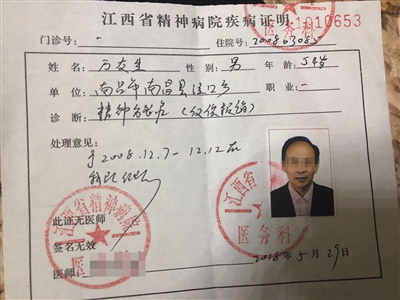 江西省精神病院疾病证明
1010653
门诊号： - 住院号：200863085
姓名：万友生 性别：男 年龄：54岁
单位：南昌市南昌县泾口乡 职业：-
诊断：精神分裂症（仅供报销）
处理意见：
于2008.12.7-12.12在
我院住院
此证无医师
签名无效
医师：
江西省精神病院
江西省
医务科
医务科
2018年5月29日